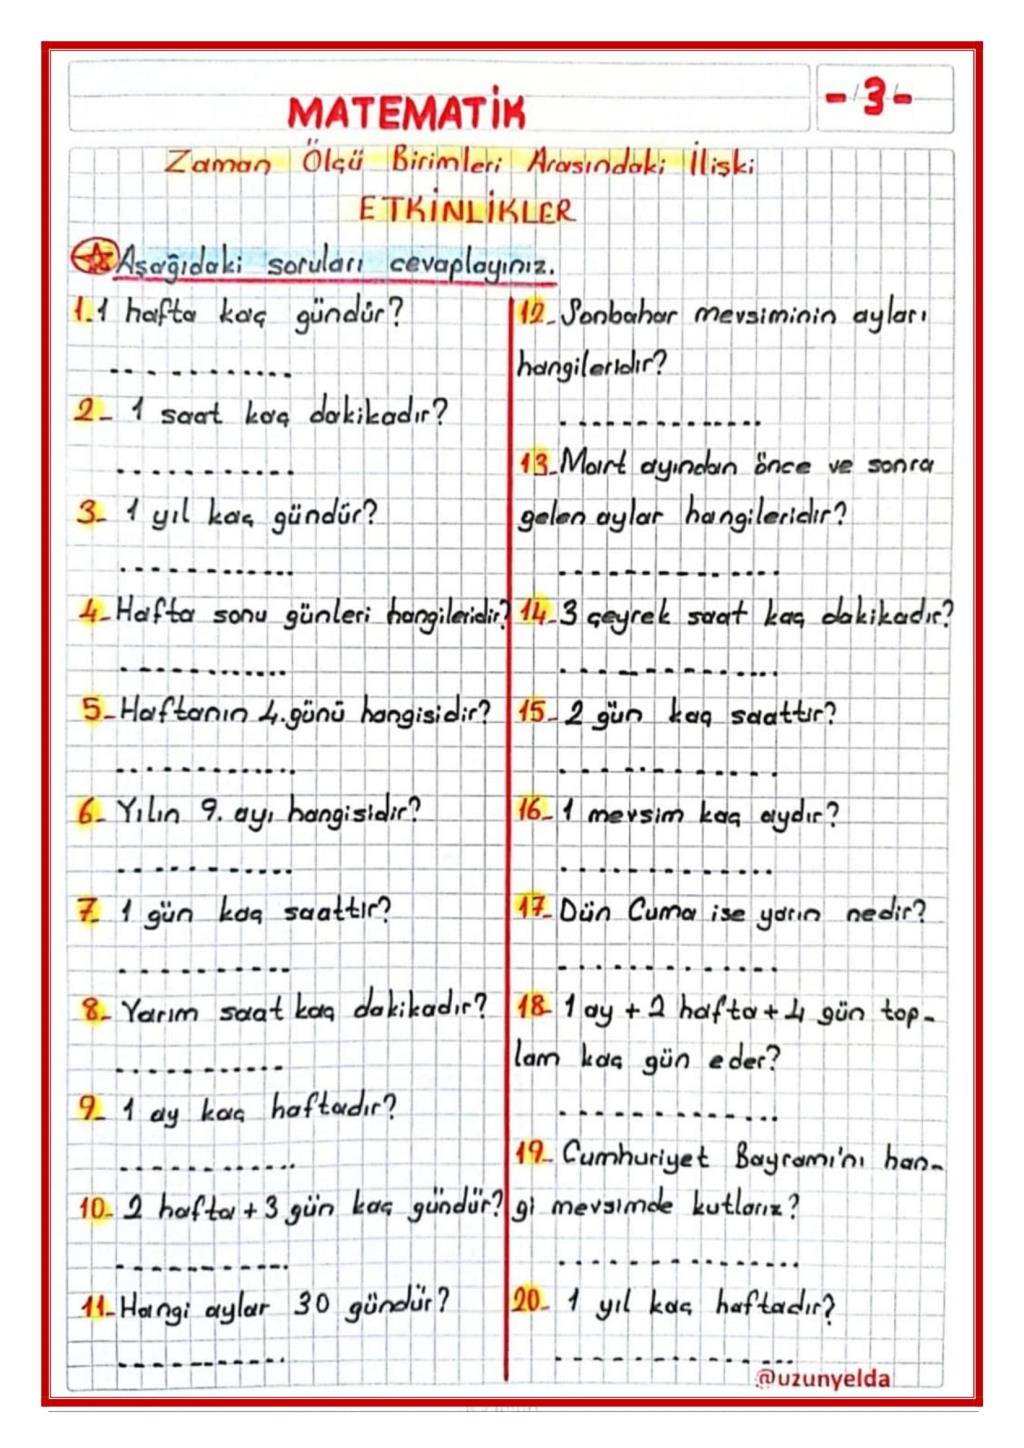 MATEMATİK
- 3 -
Zaman Ölçü Birimleri Arasındaki İlişki
ETKİNLİKLER
Aşağıdaki soruları cevaplayınız.
1. 1 hafta kaç gündür?
............
2- 1 saat kaç dakikadır?
............
3- 1 yıl kaç gündür?
............
4- Hafta sonu günleri hangileridir?
............
5- Haftanın 4.günü hangisidir?
............
6- Yılın 9. ayı hangisidir?
............
7- 1 gün kaç saattir?
............
8- Yarım saat kaç dakikadır?
............
9- 1 ay kaç haftadır?
............
10- 2 hafta + 3 gün kaç gündür?
............
11- Hangi aylar 30 gündür?
............
12- Sonbahar mevsiminin ayları
hangileridir?
..............
13- Mart ayından önce ve sonra
gelen aylar hangileridir?
..............
14- 3 çeyrek saat kaç dakikadır?
..............
15- 2 gün kaç saattir?
..............
16- 1 mevsim kaç aydır?
..............
17- Dün Cuma ise yarın nedir?
..............
18- 1 ay + 2 hafta + 4 gün top-
lam kaç gün eder?
..............
19- Cumhuriyet Bayramı'nı han-
gi mevsimde kutlarız?
..............
20- 1 yıl kaç haftadır?
..............
@uzunyelda